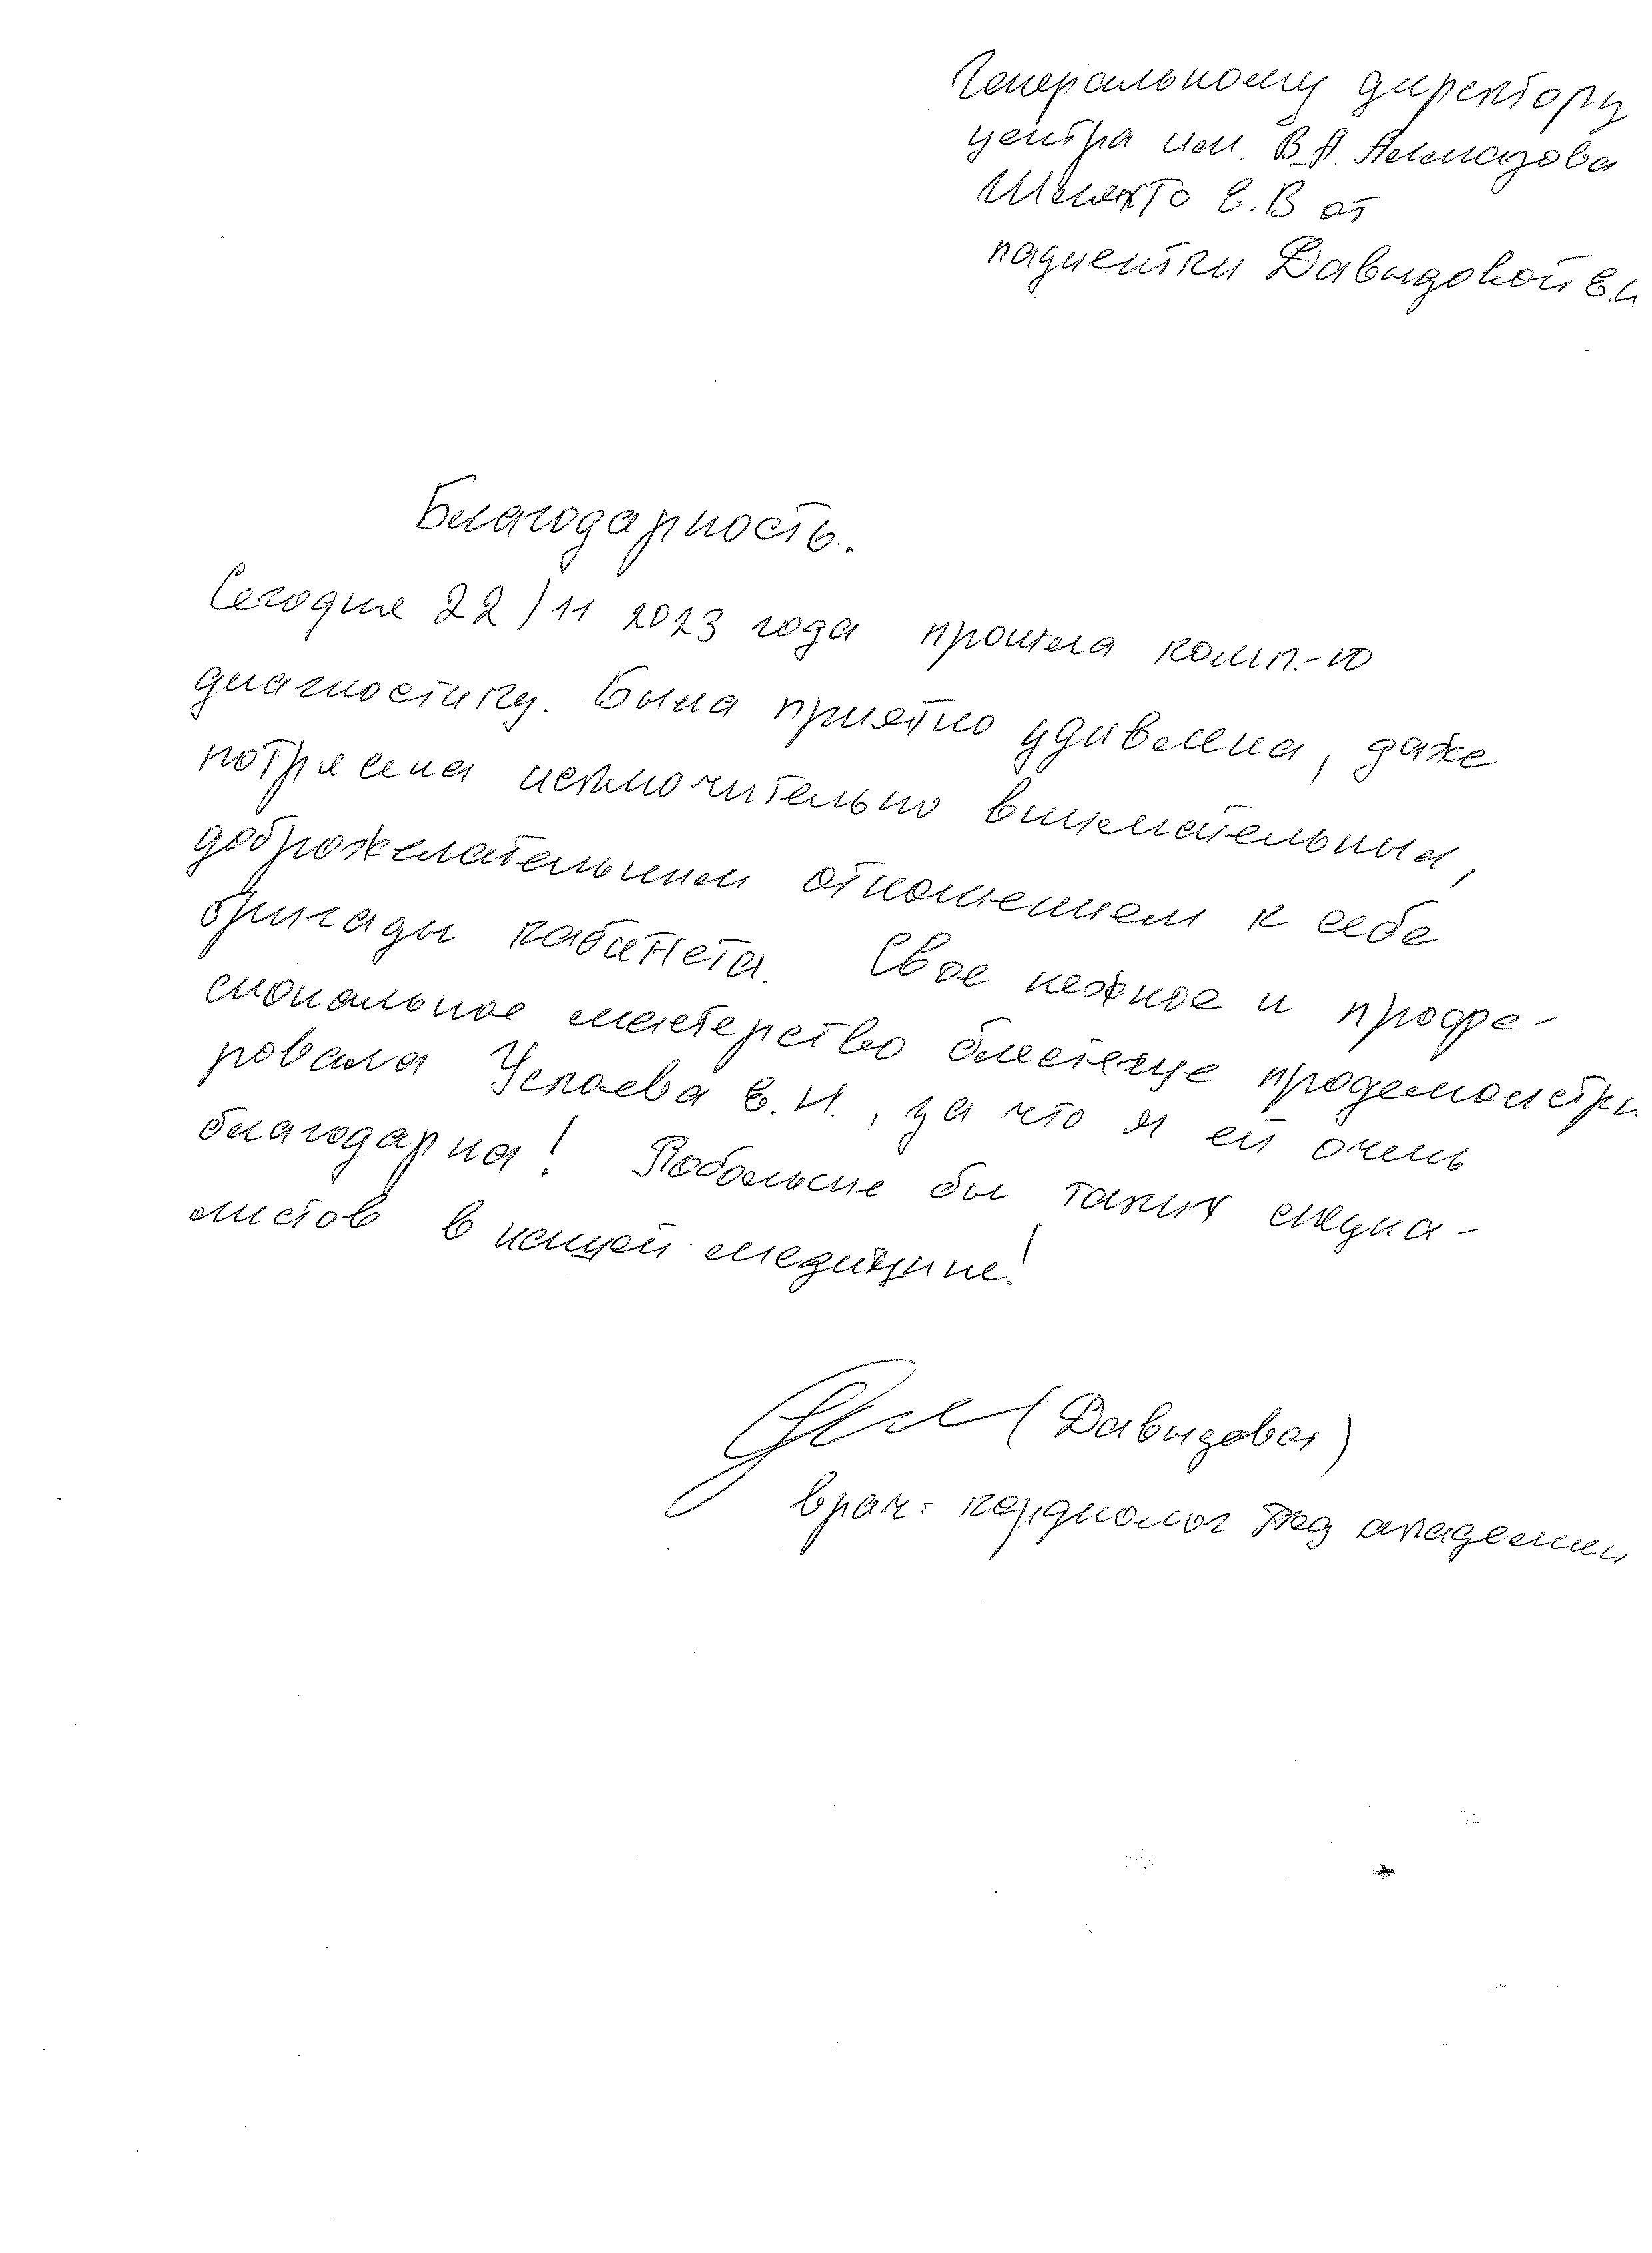 Генеральному директору
центра им. В.А. Алмазова
Шляхто Е.В от
пациентки Давыдовой Е.И
Благодарность.
Сегодня 22/11 2023 года прошла комп.-ю
диагностику. Была приятно удивлена, даже
потрясена исключительно внимательным,
доброжелательным отношением к себе
бригады кабинета. Свое нежное и профе-
сиональное мастерство блестяще продемонстри
ровала Успаева Е.И., за что я ей очень
благодарна! Побольше бы таких специа-
листов в нашей медицине!
(Давыдова)
врач-кардиолог академии